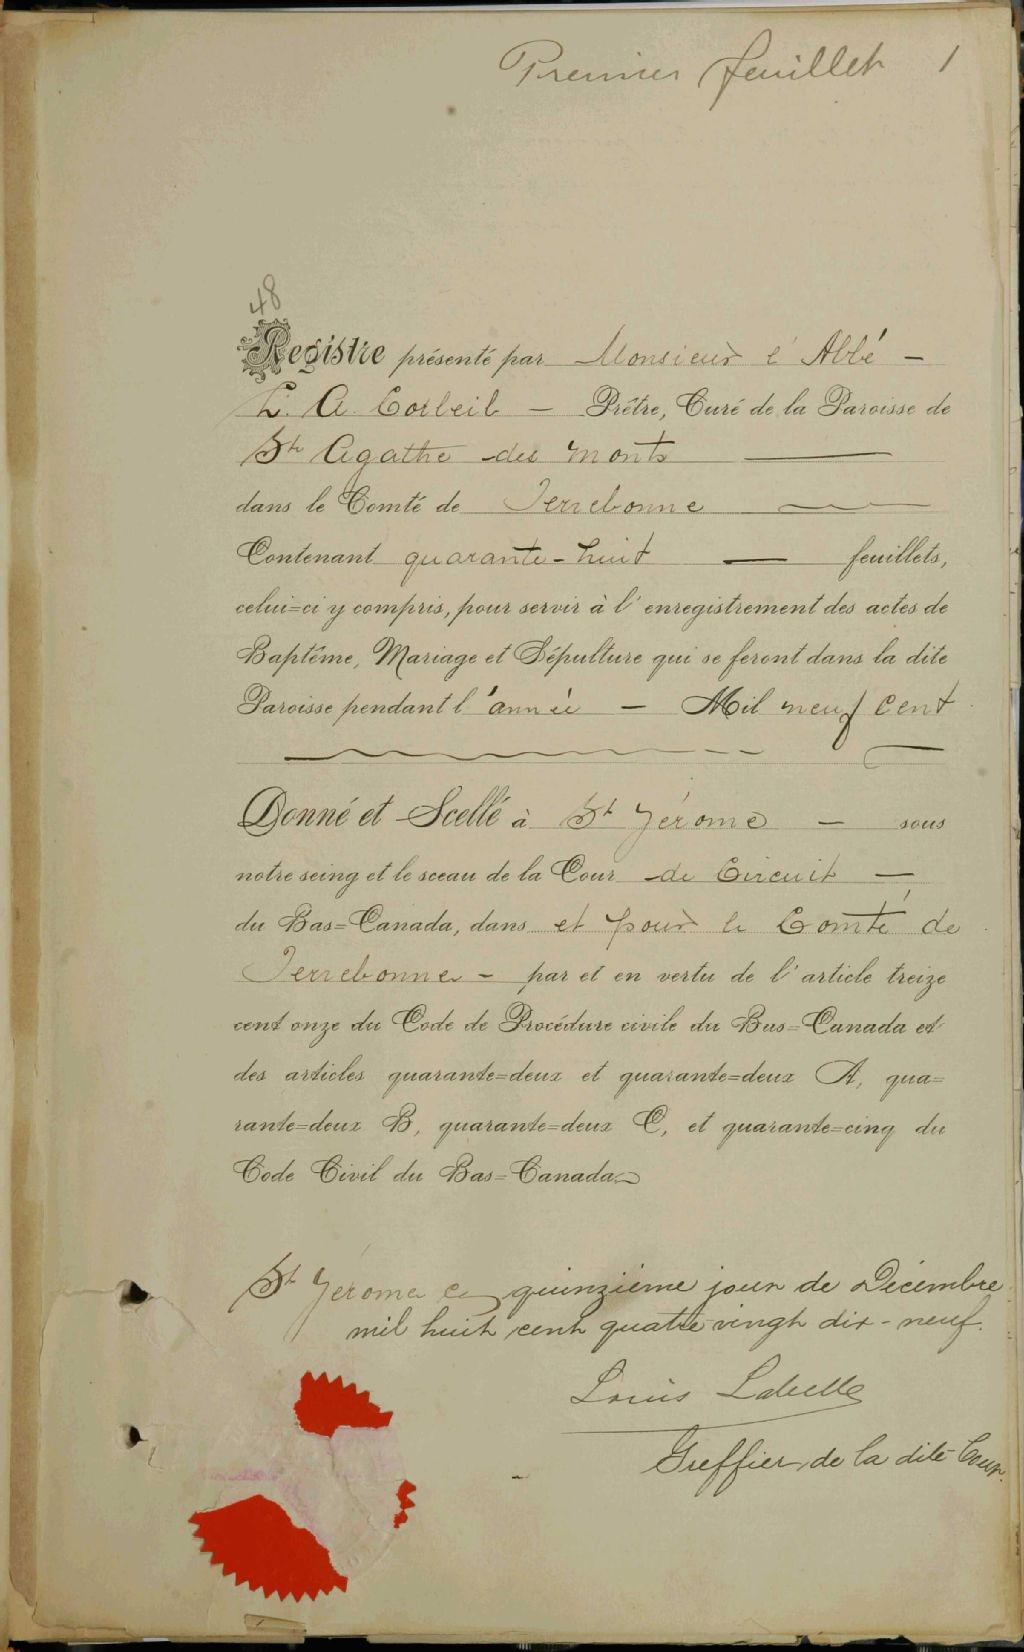 Premier feuillet 1
48
Registre présenté par Monsieur l'Abbé —
L. A. Corbeil — Prêtre, Curé de la Paroisse de
Ste Agathe des Monts
dans le Comté de Terrebonne
Contenant quarante-huit — feuillets,
celui=ci y compris, pour servir à l'enregistrement des actes de
Baptême, Mariage et Sépulture qui se feront dans la dite
Paroisse pendant l'année — Mil neuf cent
Donné et Scellé à St Jérome — sous
notre seing et le sceau de la Cour de Circuit —
du Bas=Canada, dans et pour le Comté de
Terrebonne - par et en vertu de l'article treize
cent onze du Code de Procédure civile du Bas=Canada et
des articles quarante=deux et quarante=deux A, qua=
rante=deux B, quarante=deux C, et quarante=cinq du
Code Civil du Bas=Canada
St Jérome ce quinzième jour de Décembre
mil huit cent quatre vingt dix-neuf.
Louis Labelle
Greffier de la dite Cour.